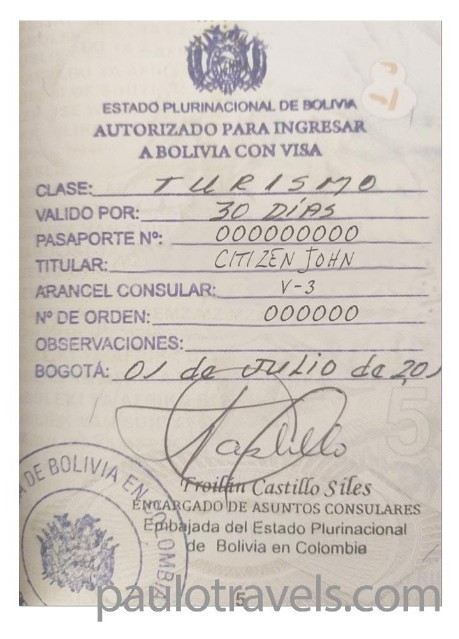 ESTADO PLURINACIONAL DE BOLIVIA
AUTORIZADO PARA INGRESAR
A BOLIVIA CON VISA
CLASE: TURISMO
VALIDO POR: 30 DÍAS
PASAPORTE Nº: 000000000
TITULAR: CITIZEN JOHN
ARANCEL CONSULAR: V-3
Nº DE ORDEN: 000000
OBSERVACIONES:
BOGOTÁ: 01 de JULIO de 201
Castillo
Froilán Castillo Siles
ENCARGADO DE ASUNTOS CONSULARES
Embajada del Estado Plurinacional
de Bolivia en Colombia
DE BOLIVIA EN COLOMBIA
5
paulotravels.com